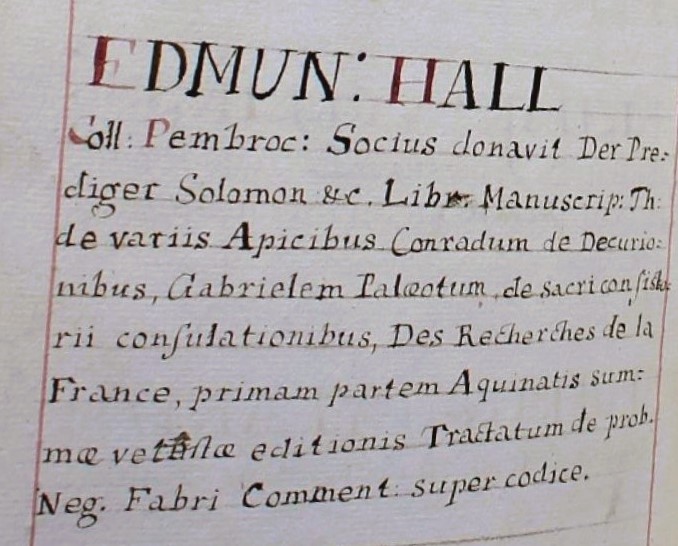 EDMUN: HALL
Coll: Pembroc: Socius donavit Der Pre-
diger Solomon &c. Libr. Manuscrip: Th:
de variis Apicibus Conradum de Decurio-
nibus, Gabrielem Palæotum de sacri consisto-
rii consulationibus, Des Recherches de la
France, primam partem Aquinatis sum-
mæ vetustæ editionis Tractatum de prob.
Neg. Fabri Comment: super codice.